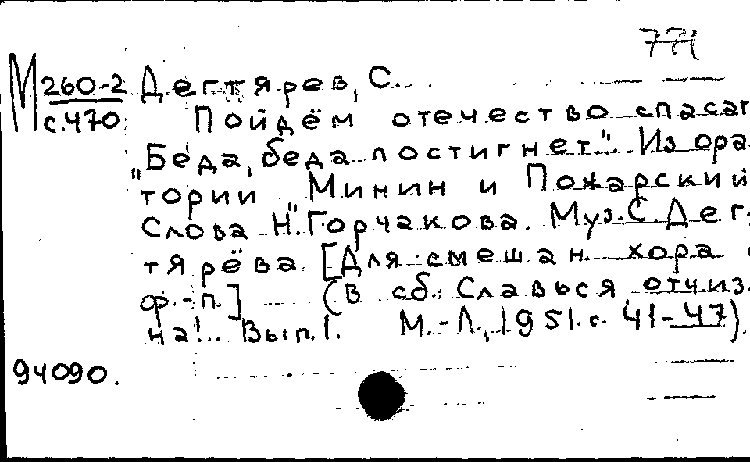 771
М 260-2 Дегтярев, С.
с.470 Пойдём отечество спасат
"Беда, беда постигнет". Из ора
тории "Минин и Пожарский
Слова Н. Горчакова. Муз. С. Дег-
тярёва. [Для смешан хора с
ф.-п.] (В сб.: Славься отчиз
на!.. Вып. 1. М.-Л., 1951. с. 41-47).
94090.